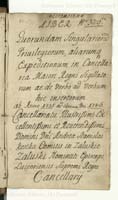 LIBER
Quorundam Singularium
Privilegiorum, aliarumq
Expeditionum in Cancella
ria Maiori Regni Sigillata
rum ac de verbo ad Verbum
hic insertarum
Cancellariatu Illustrissimi Ex
cellentissimi et Reverendissimi
Domini Dni Andreæ Stanislai
Kostka Comitis in Załuskie
Załuski Nominati Episcopi
Luceoriensis Supremi Regni
Cancellarij